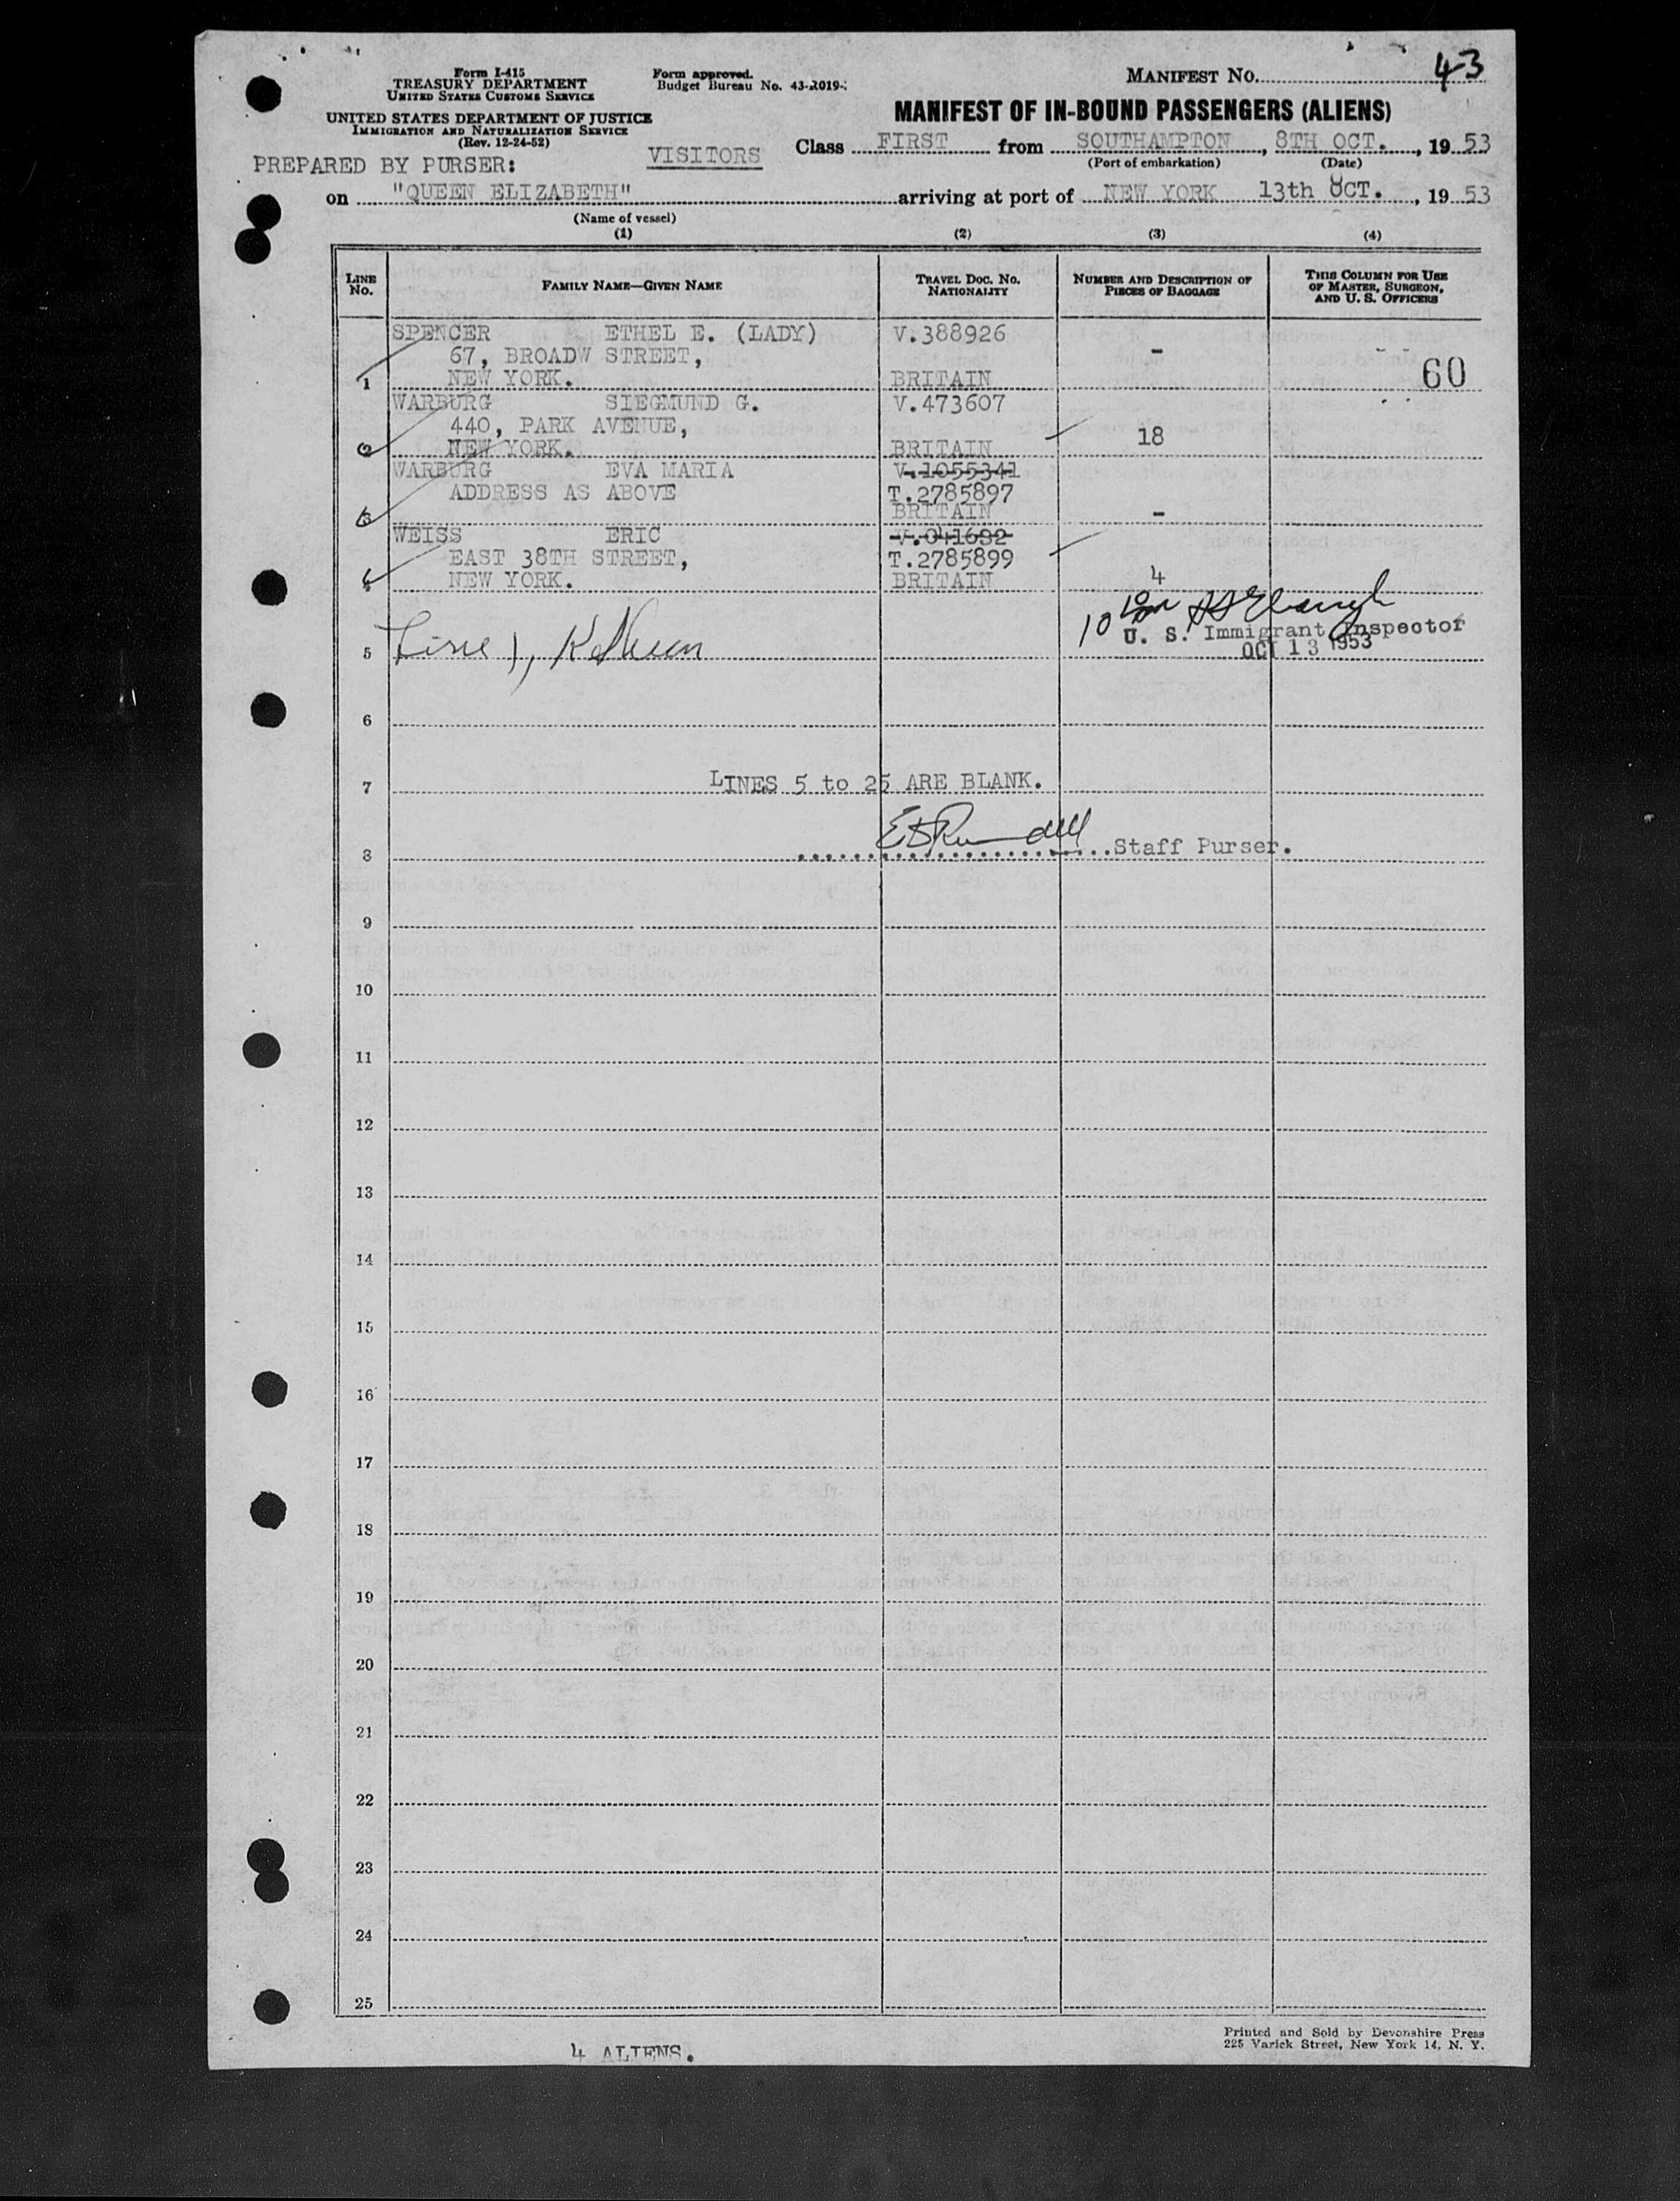 Form I-415
TREASURY DEPARTMENT
UNITED STATES CUSTOMS SERVICE
UNITED STATES DEPARTMENT OF JUSTICE
IMMIGRATION AND NATURALIZATION SERVICE
(Rev. 12-24-52)
Form approved.
Budget Bureau No. 43-R019-
MANIFEST NO. 43
MANIFEST OF IN-BOUND PASSENGERS (ALIENS)
PREPARED BY PURSER:
VISITORS
Class FIRST from SOUTHAMPTON, 8TH OCT., 19 53
(Port of embarkation) (Date)
on "QUEEN ELIZABETH" arriving at port of NEW YORK 13th OCT., 19 53
(Name of vessel)
(1) (2) (3) (4)
LINE No.
FAMILY NAME—GIVEN NAME
TRAVEL DOC. NO. NATIONALITY
NUMBER AND DESCRIPTION OF PIECES OF BAGGAGE
THIS COLUMN FOR USE OF MASTER, SURGEON, AND U. S. OFFICERS
SPENCER ETHEL E. (LADY) V.388926
67, BROADW STREET, -
1 NEW YORK. BRITAIN 60
WARBURG SIEGMUND G. V.473607
440, PARK AVENUE,
2 NEW YORK. BRITAIN 18
WARBURG EVA MARIA V.1055341
ADDRESS AS ABOVE T.2785897
3 BRITAIN -
WEISS ERIC V.041632
EAST 38TH STREET, T.2785899
4 NEW YORK. BRITAIN 4
10
U. S. Immigrant Inspector
OCT 13 1953
5 Line 1,
6
7 LINES 5 to 25 ARE BLANK.
8 Staff Purser.
9
10
11
12
13
14
15
16
17
18
19
20
21
22
23
24
25
4 ALIENS.
Printed and Sold by Devonshire Press
225 Varick Street, New York 14, N. Y.